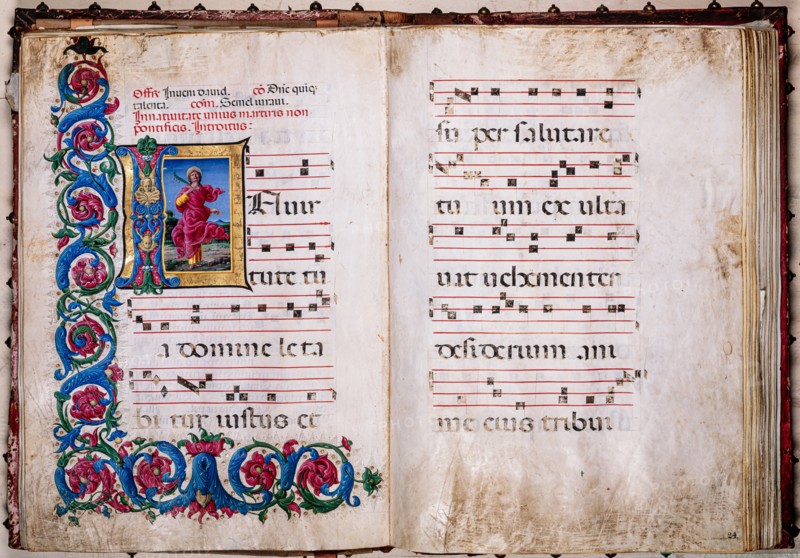 Offr̄ Inueni dauid. cō Dñe quiqȝ
talenta. com̄. Semel iuraui.
In natiuitate unius martiris non
pontificis. Introitus:
IN uir
tute tu
a domine leta
bitur iustus et
su per salutare
tu um ex ulta
uit uehementer
desiderium ani
me eius tribui
24